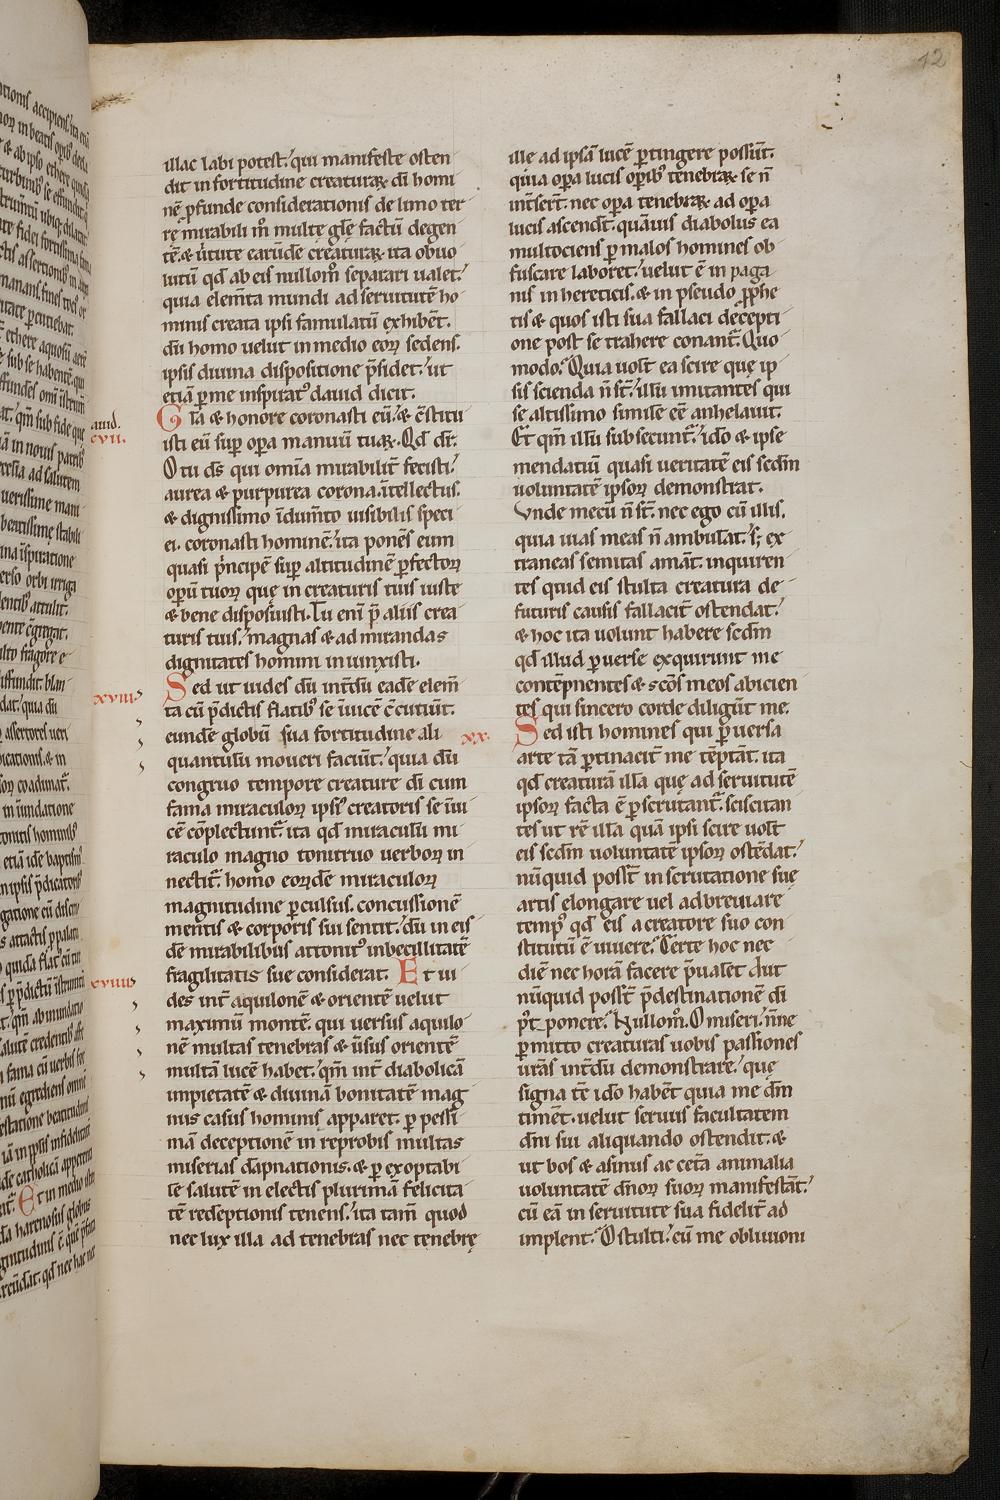 12
illac labi potest. qui manifeste osten
dit in fortitudine creaturaꝝ. dī homi
nē ꝓfunde considerationis de limo ter
rę mirabili m̊ multe gl̄e factū degen
tē. & ūtute earūdē creaturaꝝ. ita obuo
lutū qđ ab eis nullom̊ separari ualet.
quia elem̄ta mundi ad seruitutē ho
minis creata ipsi famulatū exhibēt.
dū homo uelut in medio eoꝝ sedens.
ipsis diuina dispositione p̄sidet. ut
etiā ꝑ me inspirat᷒ dauid dicit.
auid.
Gl̄a & honore coronasti eū. & c̄stitu
cvii.
isti eū suꝑ opa manuū tuaꝝ. Qđ dr̄.
O tu dſ qui om̄ia mirabilit̄ fecisti.
aurea & purpurea corona. ītellectus.
& dignissimo īdum̄to uisibilis speci
ei. coronasti hominē. ita ponēs eum
quasi p̄ncipē suꝑ altitudinē ꝑfectoꝝ
opū tuoꝝ que in creaturis tuis iuste
& bene disposuisti. Tu eni p̄ aliis crea
turis tuis. magnas & ad mirandas
dignitates homini iniunxisti.
xviii
Sed ut uides dū int̄dū eadē elem̄
ta cū p̄dictis flatib᷒ se īuicē c̄cutiūt.
eundē globū sua fortitudine ali
quantulū moueri faciūt. quia dū
congruo tempore creature dī cum
fama miraculoꝝ ipsi᷒ creatoris se īui
cē cōplectunt̄. ita qđ miraculū mi
raculo magno tonitruo uerboꝝ in
nectit̄. homo eoꝝdē miraculoꝝ
magnitudine ꝑculsus. concussionē
mentis & corporis sui sentit. dū in eis
dē mirabilibus attonit᷒ inbecillitatē
fragilitatis sue considerat. Et ui
xviiii
des int̄ aquilonē & orientē uelut
maximū montē. qui uersus aquilo
nē multas tenebras & ūsus orientē
multā lucē habet. qm̄ int̄ diabolicā
impietatē & diuinā bonitatē mag
nus casus hominis apparet. ꝑ pessi
mā deceptionē in reprobis multas
miserias dāpnationis. & ꝑ exoptabi
lē salutē in electis plurimā felicita
tē redēptionis tenens. ita tam̄ quod
nec lux illa ad tenebras nec tenebrę
ille ad ipsā lucē ꝑtingere possūt.
quia opa lucis opib᷒ tenebraꝝ se n̄
int̄sert̄. nec opa tenebraꝝ ad opa
lucis ascendt̄. quāuis diabolus ea
multociens ꝑ malos homines ob
fuscare laboret. uelut ē in paga
nis in hereticis. & in pseudo ꝓphe
tis & quos isti sua fallaci decepti
one post se trahere conant̄. Quo
modo. Quia uolt̄ ea scire que ip
sis scienda n̄ st̄. illū imitantes qui
se altissimo similē eē anhelauit.
Et qm̄ illū subsecunt̄. ido & ipse
mendatiū quasi ueritatē eis sedm̄
uoluntatē ipsoꝝ demonstrat.
Vnde mecū n̄ st̄. nec ego cū illis.
quia uias meas n̄ ambulāt. s; ex
traneas semitas amāt. inquiren
tes quid eis stulta creatura de
futuris causis fallacit̄ ostendat.
& hoc ita uolunt habere sedm̄
qđ illud ꝑuerse exquirunt me
contēpnentes & scōs meos abicien
tes qui sincero corde diligūt me.
xx.
Sed isti homines qui ꝑuersa
arte tā ꝑtinacit̄ me tēptāt. ita
qđ creaturā illā que ad seruitutē
ipsoꝝ facta ē ꝑscrutant̄. sciscitan
tes ut rē illā quā ipsi scire uolt̄
eis sedm̄ uoluntatē ipsoꝝ ostēdat.
nūquid posst̄ in scrutatione sue
artis elongare uel adbreuiare
temp᷒ qđ eis a creatore suo con
stitutū ē uiuere. Certe hoc nec
diē nec horā facere p̄ualet̄. Aut
nūquid posst̄ p̄destinationē dī
p̄t ponere. Nullom̊. O miseri. n̄ne
ꝑmitto creaturas uobis passiones
urās int̄dū demonstrare. que
signa tē ido habēt quia me dm̄
timēt. uelut seruus facultatem
dn̄i sui aliquando ostendit. &
ut bos & asinus ac cet̄a animalia
uoluntatē dn̄oꝝ suoꝝ manifestāt.
cū eā in seruitute sua fidelit̄ ad
implent. O stulti. cū me obliuioni